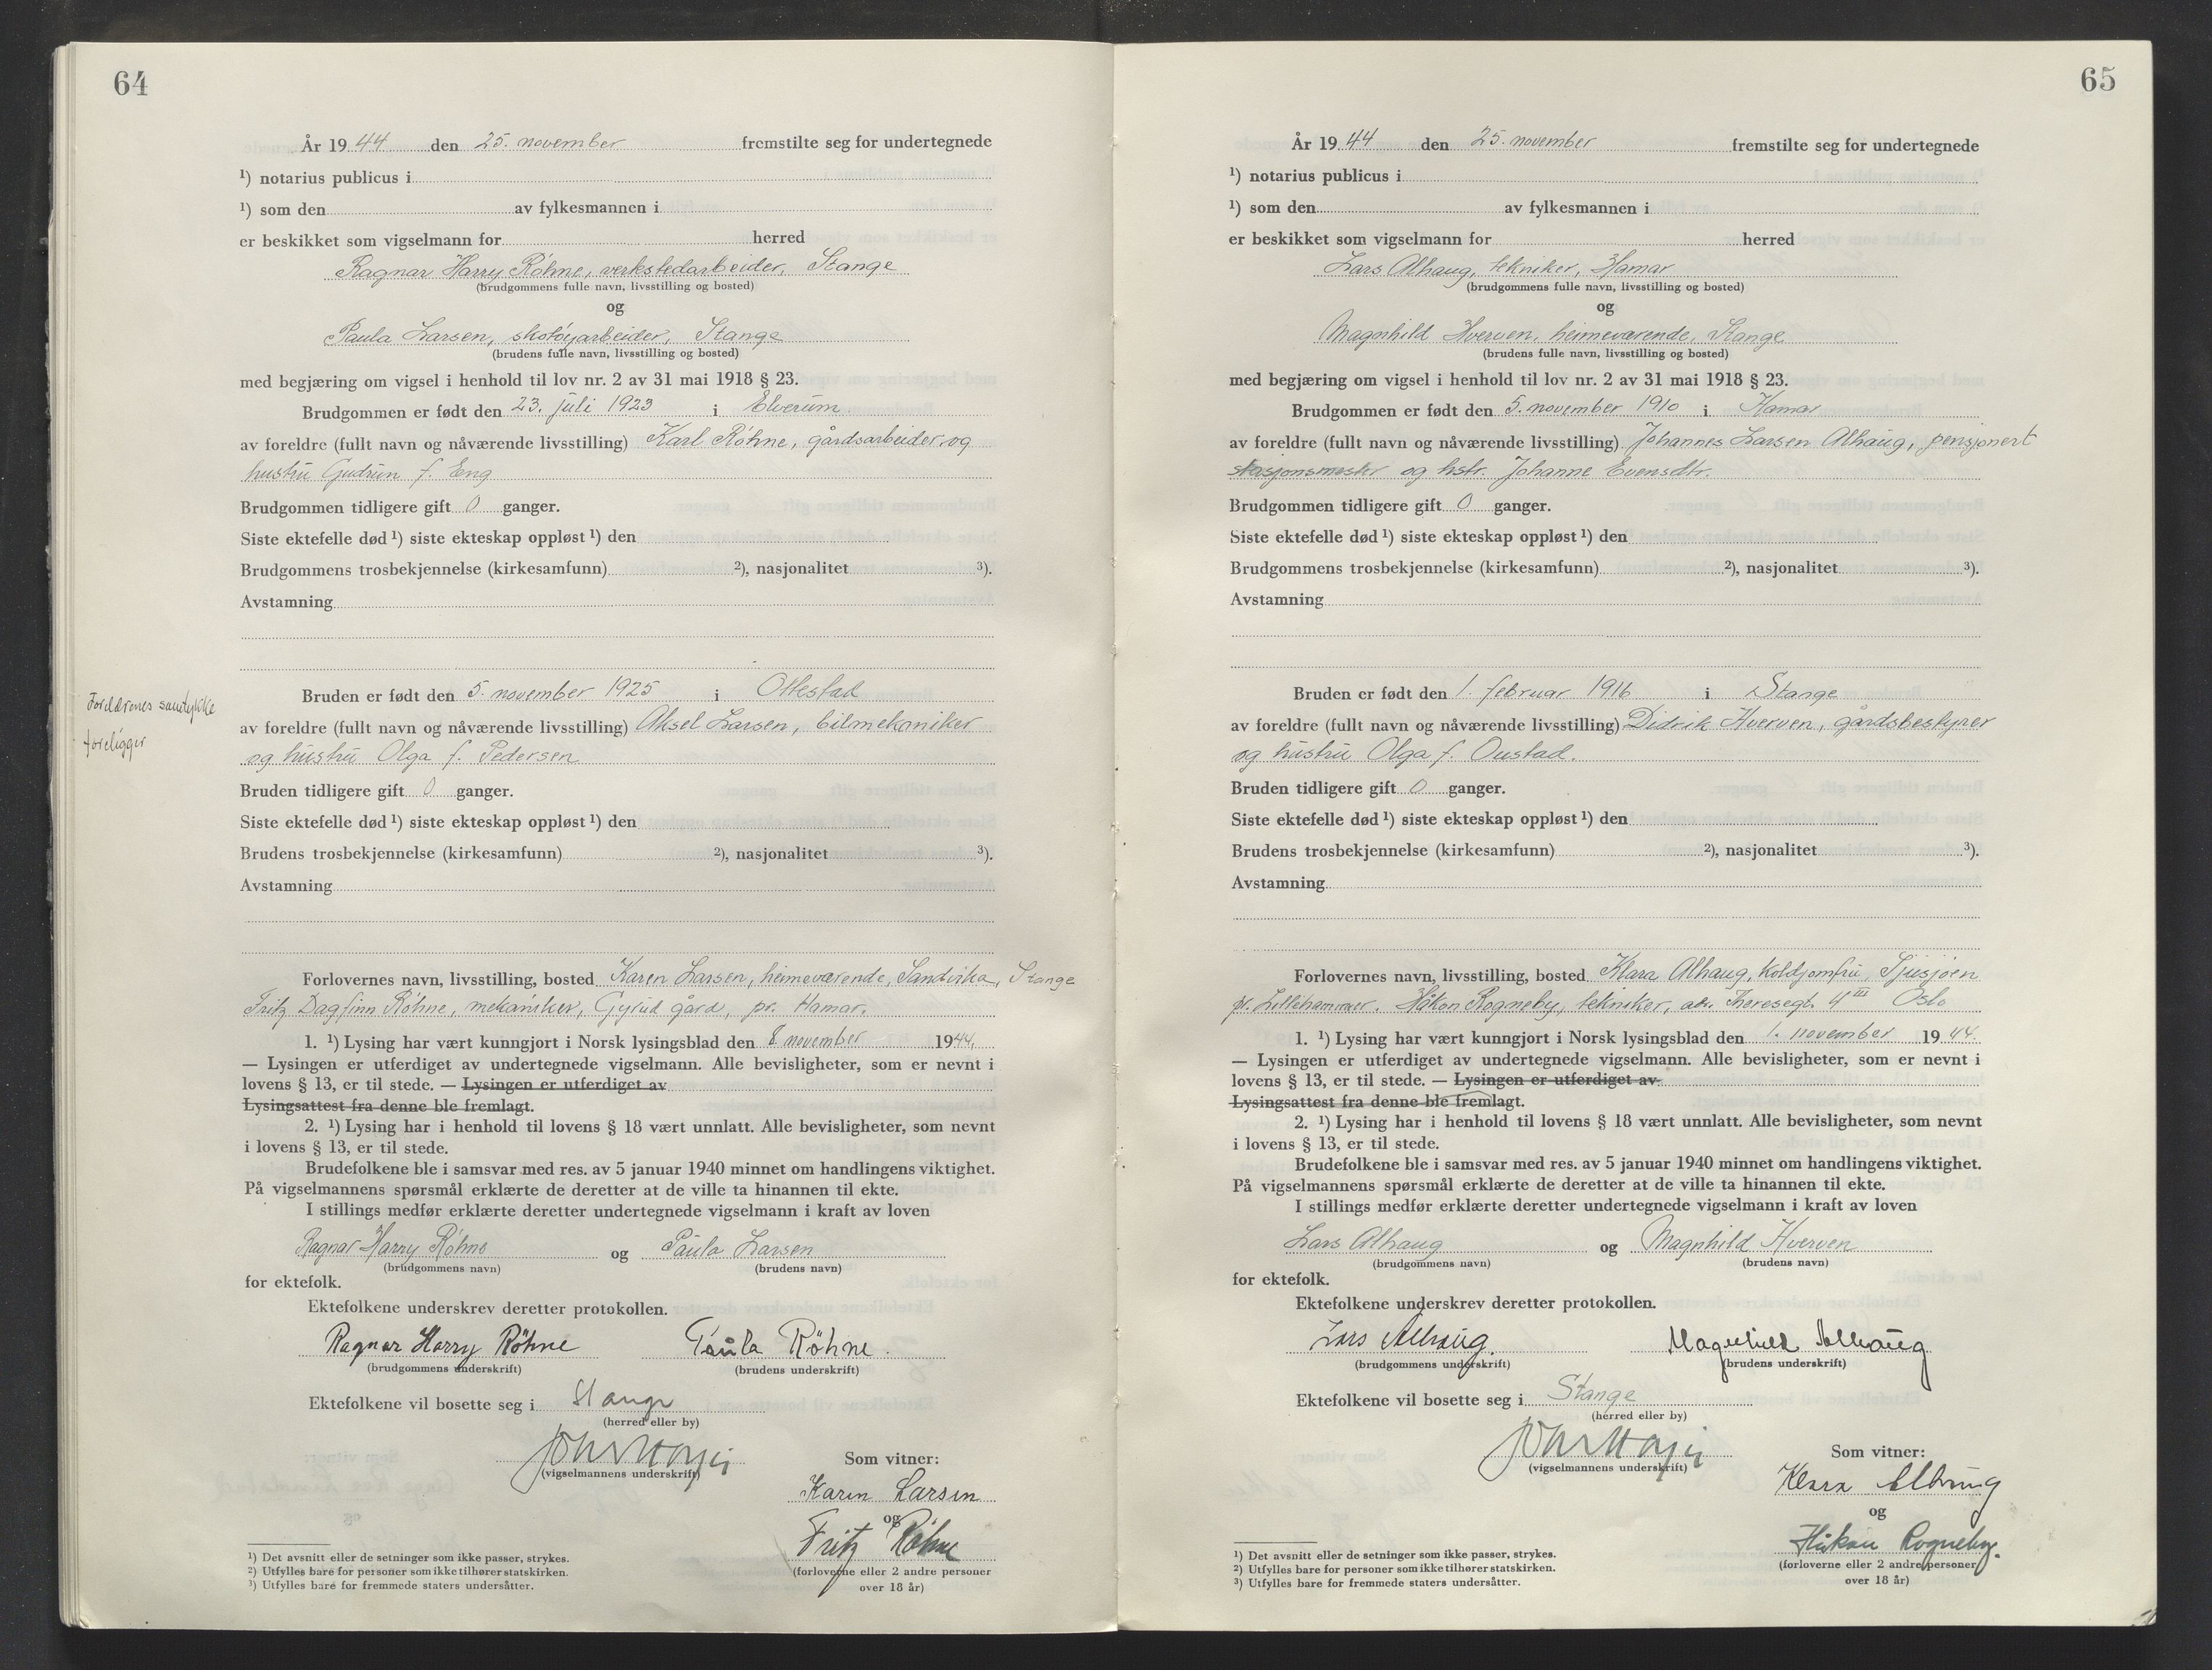 64
År 1944 den 25. november fremstilte seg for undertegnede
¹) notarius publicus i
¹) som den av fylkesmannen i
er beskikket som vigselmann for herred
Ragnar Harry Röhne, verkstedarbeider, Stange
(brudgommens fulle navn, livsstilling og bosted)
og
Paula Larsen, skotøyarbeider, Stange
(brudens fulle navn, livsstilling og bosted)
med begjæring om vigsel i henhold til lov nr. 2 av 31 mai 1918 § 23.
Brudgommen er født den 23. juli 1923 i Elverum
av foreldre (fullt navn og nåværende livsstilling) Karl Röhne, gårdsarbeider og
hustru Gudrun f. Eng
Brudgommen tidligere gift 0 ganger.
Siste ektefelle død ¹) siste ekteskap oppløst ¹) den
Brudgommens trosbekjennelse (kirkesamfunn) ²), nasjonalitet ³).
Avstamning
Foreldrenes samtykke
foreligger
Bruden er født den 5. november 1925 i Ottestad
av foreldre (fullt navn og nåværende livsstilling) Aksel Larsen, bilmekaniker
og hustru Olga f. Pedersen
Bruden tidligere gift 0 ganger.
Siste ektefelle død ¹) siste ekteskap oppløst ¹) den
Brudens trosbekjennelse (kirkesamfunn) ²), nasjonalitet ³).
Avstamning
Forlovernes navn, livsstilling, bosted Karen Larsen, heimeværende, Sandvika, Stange
Fritz Dagfinn Röhne, mekaniker, Gyrud gård, pr. Hamar.
1. ¹) Lysing har vært kunngjort i Norsk lysingsblad den 8. november 1944.
— Lysingen er utferdiget av undertegnede vigselmann. Alle bevisligheter, som er nevnt i
lovens § 13, er til stede. — Lysingen er utferdiget av
Lysingsattest fra denne ble fremlagt.
2. ¹) Lysing har i henhold til lovens § 18 vært unnlatt. Alle bevisligheter, som nevnt
i lovens § 13, er til stede.
Brudefolkene ble i samsvar med res. av 5 januar 1940 minnet om handlingens viktighet.
På vigselmannens spørsmål erklærte de deretter at de ville ta hinannen til ekte.
I stillings medfør erklærte deretter undertegnede vigselmann i kraft av loven
Ragnar Harry Röhne og Paula Larsen
(brudgommens navn) (brudens navn)
for ektefolk.
Ektefolkene underskrev deretter protokollen.
Ragnar Harry Röhne Paula Röhne.
(brudgommens underskrift) (brudens underskrift)
Ektefolkene vil bosette seg i Stange
(herred eller by)
(vigselmannens underskrift)
Som vitner:
Karen Larsen
og
Fritz Röhne
(forloverne eller 2 andre personer
over 18 år)
¹) Det avsnitt eller de setninger som ikke passer, strykes.
²) Utfylles bare for personer som ikke tilhører statskirken.
³) Utfylles bare for fremmede staters undersåtter.
65
År 1944 den 25. november fremstilte seg for undertegnede
¹) notarius publicus i
¹) som den av fylkesmannen i
er beskikket som vigselmann for herred
Lars Alhaug, tekniker, Hamar
(brudgommens fulle navn, livsstilling og bosted)
og
Magnhild Hverven, heimeværende, Stange
(brudens fulle navn, livsstilling og bosted)
med begjæring om vigsel i henhold til lov nr. 2 av 31 mai 1918 § 23.
Brudgommen er født den 5. november 1910 i Hamar
av foreldre (fullt navn og nåværende livsstilling) Johannes Larsen Alhaug, pensjonert
stasjonsmester og hstr. Johanne Evensdtr.
Brudgommen tidligere gift 0 ganger.
Siste ektefelle død ¹) siste ekteskap oppløst ¹) den
Brudgommens trosbekjennelse (kirkesamfunn) ²), nasjonalitet ³).
Avstamning
Bruden er født den 1. februar 1916 i Stange
av foreldre (fullt navn og nåværende livsstilling) Didrik Hverven, gårdsbestyrer
og hustru Olga f. Oustad.
Bruden tidligere gift 0 ganger.
Siste ektefelle død ¹) siste ekteskap oppløst ¹) den
Brudens trosbekjennelse (kirkesamfunn) ²), nasjonalitet ³).
Avstamning
Forlovernes navn, livsstilling, bosted Klara Alhaug, koldjomfru, Sjusjøen
pr. Lillehammer. Håkon Rogneby, tekniker, Theresegt. 4 III Oslo
1. ¹) Lysing har vært kunngjort i Norsk lysingsblad den 1. november 1944.
— Lysingen er utferdiget av undertegnede vigselmann. Alle bevisligheter, som er nevnt i
lovens § 13, er til stede. — Lysingen er utferdiget av
Lysingsattest fra denne ble fremlagt.
2. ¹) Lysing har i henhold til lovens § 18 vært unnlatt. Alle bevisligheter, som nevnt
i lovens § 13, er til stede.
Brudefolkene ble i samsvar med res. av 5 januar 1940 minnet om handlingens viktighet.
På vigselmannens spørsmål erklærte de deretter at de ville ta hinannen til ekte.
I stillings medfør erklærte deretter undertegnede vigselmann i kraft av loven
Lars Alhaug og Magnhild Hverven
(brudgommens navn) (brudens navn)
for ektefolk.
Ektefolkene underskrev deretter protokollen.
Lars Alhaug. Magnhild Alhaug
(brudgommens underskrift) (brudens underskrift)
Ektefolkene vil bosette seg i Stange
(herred eller by)
(vigselmannens underskrift)
Som vitner:
Klara Alhaug
og
Håkon Rogneby.
(forloverne eller 2 andre personer
over 18 år)
¹) Det avsnitt eller de setninger som ikke passer, strykes.
²) Utfylles bare for personer som ikke tilhører statskirken.
³) Utfylles bare for fremmede staters undersåtter.